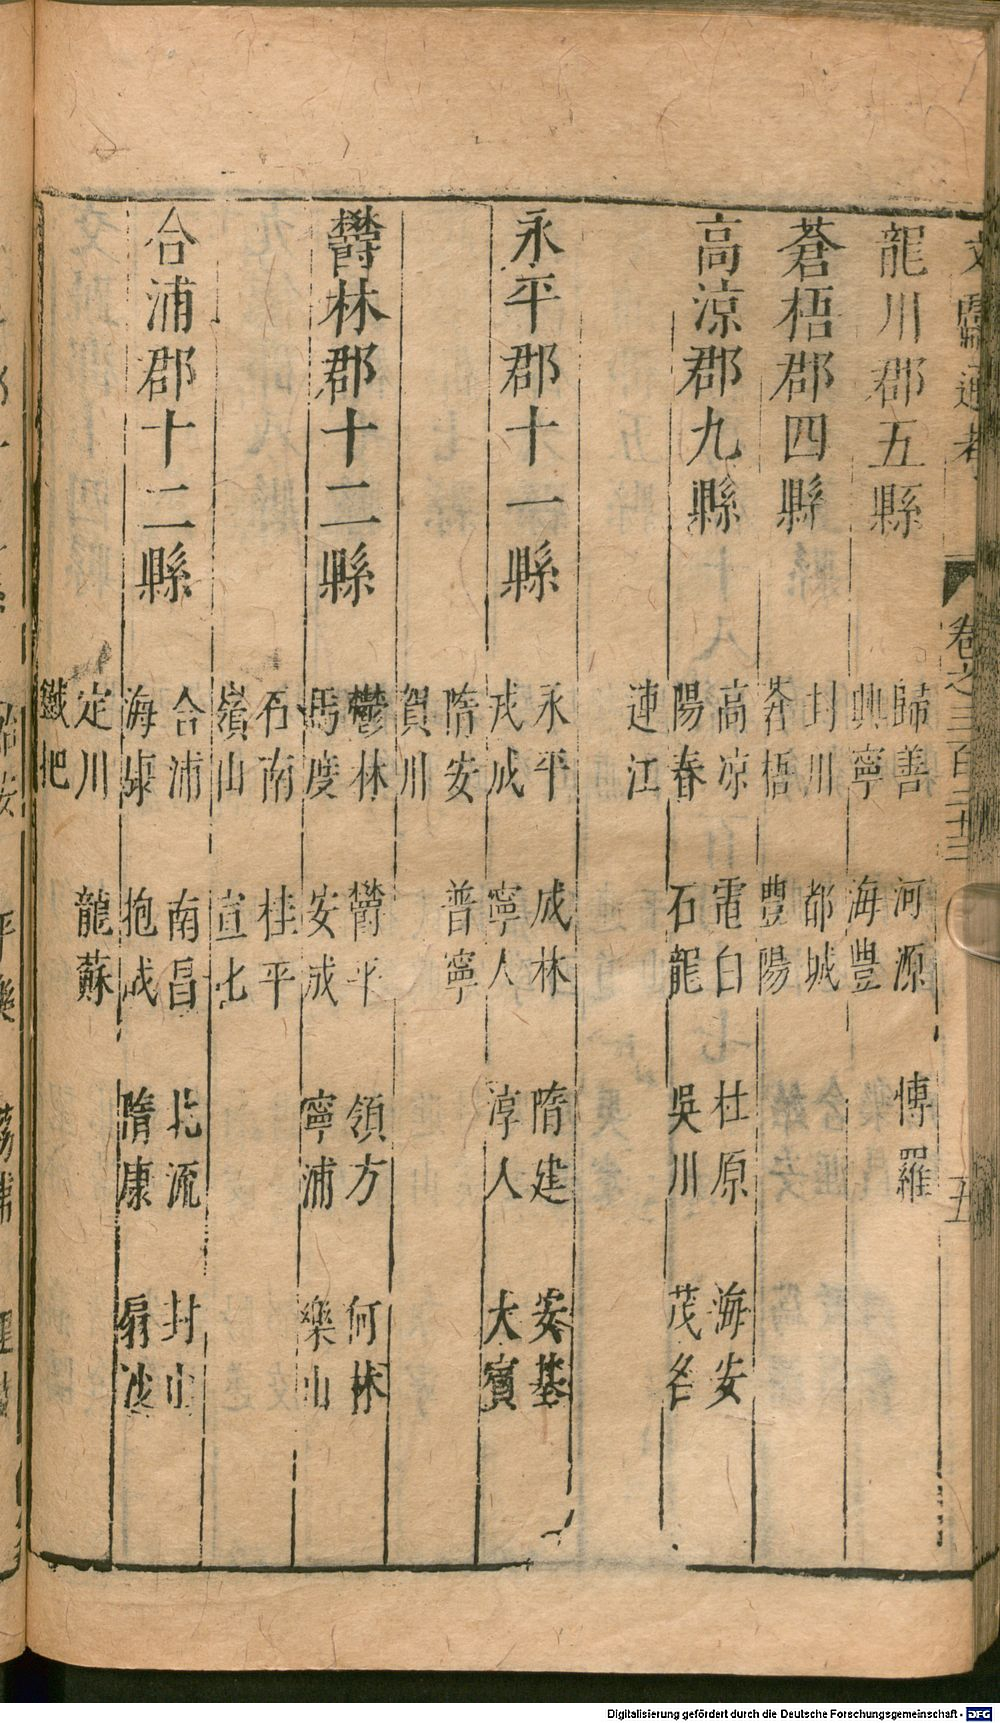 文獻通考
卷之三百二十三
五
龍川郡五縣
歸善 河源 博羅
興寧 海豐
蒼梧郡四縣
封川 都城
蒼梧 豐陽
高涼郡九縣
高凉 電白 杜原 海安
陽春 石龍 吳川 茂名
連江
永平郡十一縣
永平 戍林 隋建 安基
戍成 寧人 淳人 大賓
隋安 普寧
賀川
鬱林郡十二縣
鬱林 鬱平 領方 何林
馬度 安成 寧浦 樂山
石南 桂平
嶺山 宣化
合浦郡十二縣
合浦 南昌 北流 封山
海康 抱成 隋康 扇沙
定川 龍蘇
鐵把
Digitalisierung gefördert durch die Deutsche Forschungsgemeinschaft - DFG